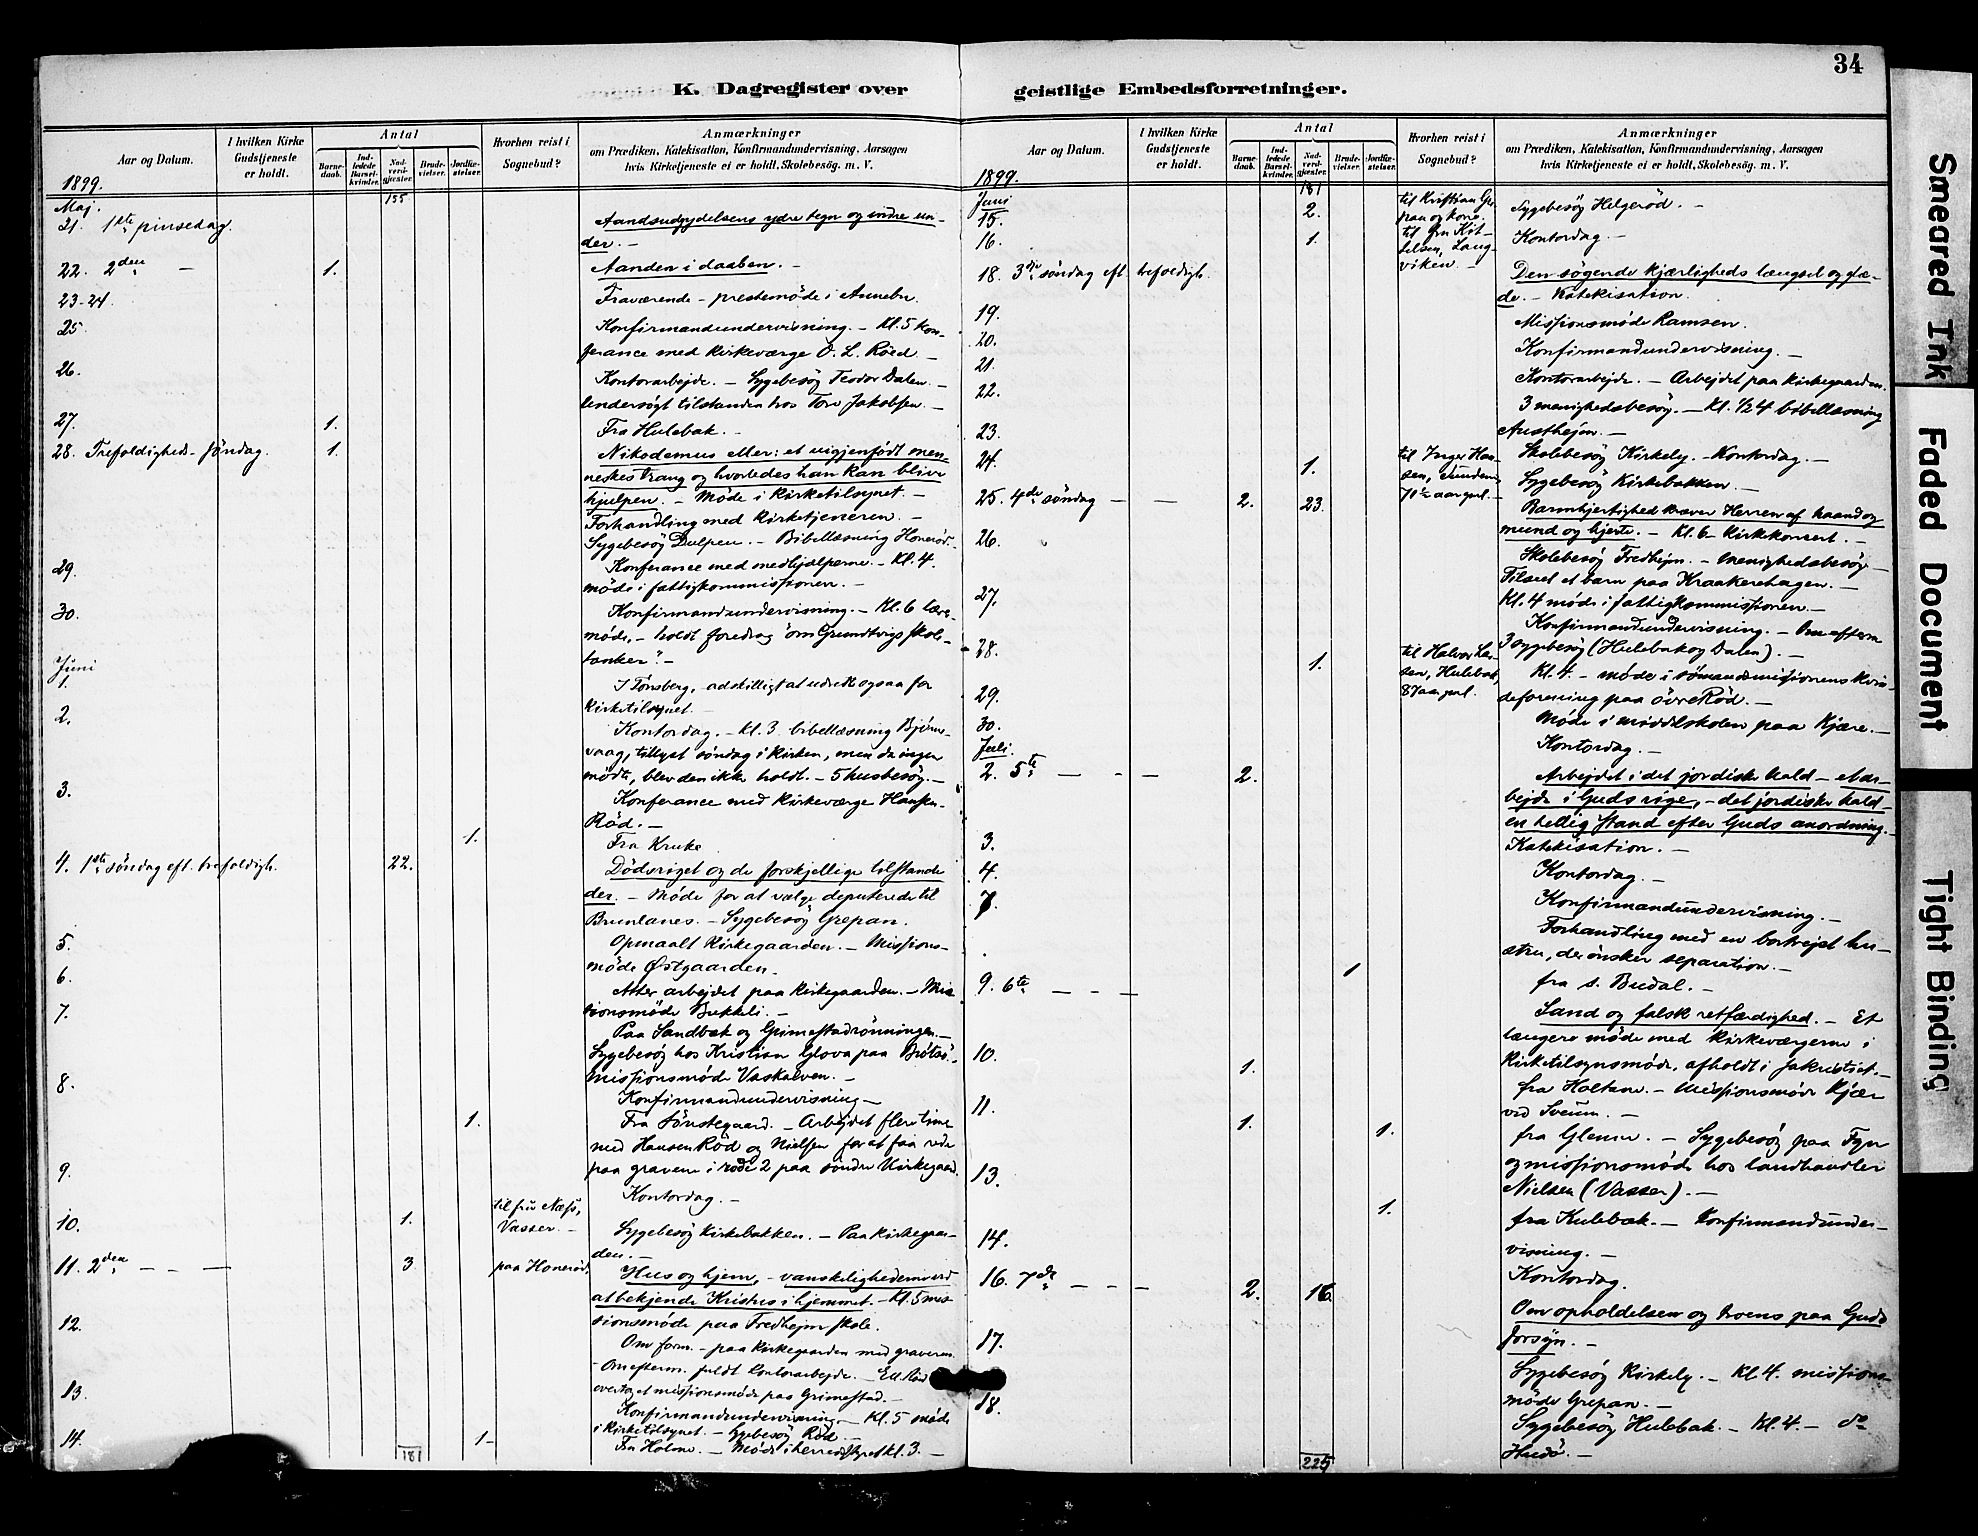 34
K. Dagregister over
geistlige Embedsforretninger.
Aar og Datum.
I hvilken Kirke Gudstjeneste er holdt.
Antal
Barne-daab.
Ind-ledede Barsel-kvinder.
Nad-verd-gjæster.
Brude-vielser.
Jordfæ-stelser.
Hvorhen reist i Sognebud?
Anmærkninger
om Prædiken, Katekisation, Konfirmandundervisning, Aarsagen
hvis Kirketjeneste ei er holdt, Skolebesøg. m. V.
1899.
Maj.
155
21. 1ste pinsedag.
Aandsudgydelsens ydre tegn og indre un-
der. —
22. 2den — 1.
Aanden i daaben. —
23-24.
Fraværende - prestemøde i Annebu.
25.
Konfirmandundervisning. — Kl. 5 kon-
ferance med kirkeværge O. L. Röed —
26.
Kontorarbejde. — Sygebesøg Teodor Dalen. —
Undersøgt tilstanden hos Tore Jakobsen. —
27. 1.
Fra Hulebak. —
28. Trefoldigheds-søndag. 1.
Nikodemus eller: et uigjenfødt men-
neskes trang og hvorledes han kan blive
hjulpen. — Møde i kirketilsynet. —
Forhandling med kirketjeneren. —
Sygebesøg Dulpen. — Bibellæsning Honerød. —
29.
Konferance med medhjælperne. — Kl. 4.
møde i fattigkommissionen. —
30.
Konfirmandundervisning. — Kl. 6 lære-
møde, — holdt foredrag "om Grundtvigs skole-
tanker". —
Juni
1.
I Tønsberg, — adskilligt at udrette ogsaa for
kirketilsynet. —
2.
Kontordag. — Kl. 3 bibellæsning Bjørne-
vaag, tillyst søndag i kirken, men da ingen
mødte, blev den ikke holdt. — 5 husbesøg. —
3.
Konferance med kirkeværge Hansen-
Röd. —
1.
Fra Kruke
4. 1ste søndag eft. trefoldigh. 22.
Dødsriget og de forskjellige tilstande
der. — Møde for at vælge deputerede til
Brunlanes. — Sygebesøg Grepan.
5.
Opmaalt kirkegaarden. — Missions-
møde Østgaarden. —
6.
Atter arbejdet paa kirkegaarden. — Mis-
sionsmøde Bekkeli. —
7.
Paa Sandbæk og Grimestadrønningen. —
Sygebesøg hos Kristian Glova paa Brøtsø. —
Missionsmøde Vaskalven. —
8.
Konfirmandundervisning —
1.
Fra Sønstegaard. — Arbejdet flere timer
med Hansen Röd og Nielsen for at faa rede
paa gravene i rode 2 paa søndre kirkegaard.
9.
Kontordag. —
10. 1. til fru Næss, Vasser. —
Sygebesøg Kirkebakken. — Paa kirkegaar-
den. —
11. 2den — — — 3 paa Honerød.
Hus og hjem, — vanskelighederne ved
at bekjende Kristus i hjemmet. — Kl. 5 mis-
sionsmøde paa Fredhejm skole.
12.
Om form. — paa kirkegaarden med graveren.
— Om efterm. fuldt kontorarbejde. —
overtaget missionsmøde paa Grimestad. —
13.
Konfirmandundervisning. — Kl. 5 møde
i kirketilsynet. — Sygebesøg Röd. —
14. 1-
Fra Holme. — Møde i herredstyret kl. 3. —
181
Aar og Datum.
I hvilken Kirke Gudstjeneste er holdt.
Antal
Barne-daab.
Ind-ledede Barsel-kvinder.
Nad-verd-gjæster.
Brude-vielser.
Jordfæ-stelser.
Hvorhen reist i Sognebud?
Anmærkninger
om Prædiken, Katekisation, Konfirmandundervisning, Aarsagen
hvis Kirketjeneste ei er holdt, Skolebesøg. m. V.
1899.
Juni
181
15. 2. til Kristian Gre-
pan og kone.
Sygebesøg Helgerød. —
16. 1. til fru Kit-
telsen, Lang-
viken. —
Kontordag. —
18. 3die søndag eft. trefoldigh.
Den søgende kjærligheds længsel og glæ-
de. — Katekisation.
19.
Missionsmøde Ramsen.
20.
Konfirmandundervisning. —
21.
Kontorarbejde. — Arbejdet paa kirkegaarden.
22.
3 menighedsbesøg. — Kl. 1/2 4 bibellæsning
Austhejm. —
23.
Skolebesøg Kirkely. — Kontordag. —
24. 1. til Inger Han-
sen, Sunden,
70 1/2 aar gml. —
Sygebesøg Kirkebakken. —
25. 4de søndag — — 2. 23.
Barmhjertighed kræver Herren af haand og
mund og hjerte. — Kl. 6 — kirkekonsert. —
26.
Skolebesøg Fredhejm. — Menighedsbesøg. —
Tilseet et barn paa Kraakerehagen. —
Kl. 4 møde i fattigkommissionen. —
27.
Konfirmandundervisning. — Om efterm
3 sygebesøg (Hulebak og Dalen). —
28. 1. til Halvor Lar-
sen, Hulebak,
87 aar gml.
Kl. 4. — møde i sømandsmissionens kvin-
deforening paa øvre Röd. —
29.
Møde i middelskolen paa Kjære. —
30.
Kontordag. —
Juli.
2. 5te — - — 2.
Arbejdet i det jordiske kald — et ar-
bejde i Guds rige, — det jordiske kald
en hellig stand efter Guds anordning. —
Katekisation. —
3.
Kontordag. —
4.
Konfirmandundervisning. —
7.
Forhandling med en bortrejst hu-
stru, der ønsker separation. —
1
fra s. Budal. —
9. 6te — - —
Sand og falsk retfærdighed. — Et
længere møde med kirkeværgerne i
kirketilsynsmøde, afholdt i sakristiet. —
10. 1.
fra Holtan. — Missionsmøde Kjær
ved Sveum. —
11. 1. 1.
fra Glenne. — Sygebesøg paa Fyn
og missionsmøde hos landhandler
Nielsen (Vasser). —
13. 1.
fra Hulebak. — Konfirmandunder-
visning. —
14.
Kontordag.
16. 7de — — — 2. 16.
Om opholdelsen og troens paa Guds
forsyn. —
17.
Sygebesøg Kirkely. — Kl. 4. missions-
møde Grepan. —
18.
Sygebesøg Hulebak. — Kl. 4. — do
Hudø. —
225
Smeared Ink
Faded Document
Tight Binding